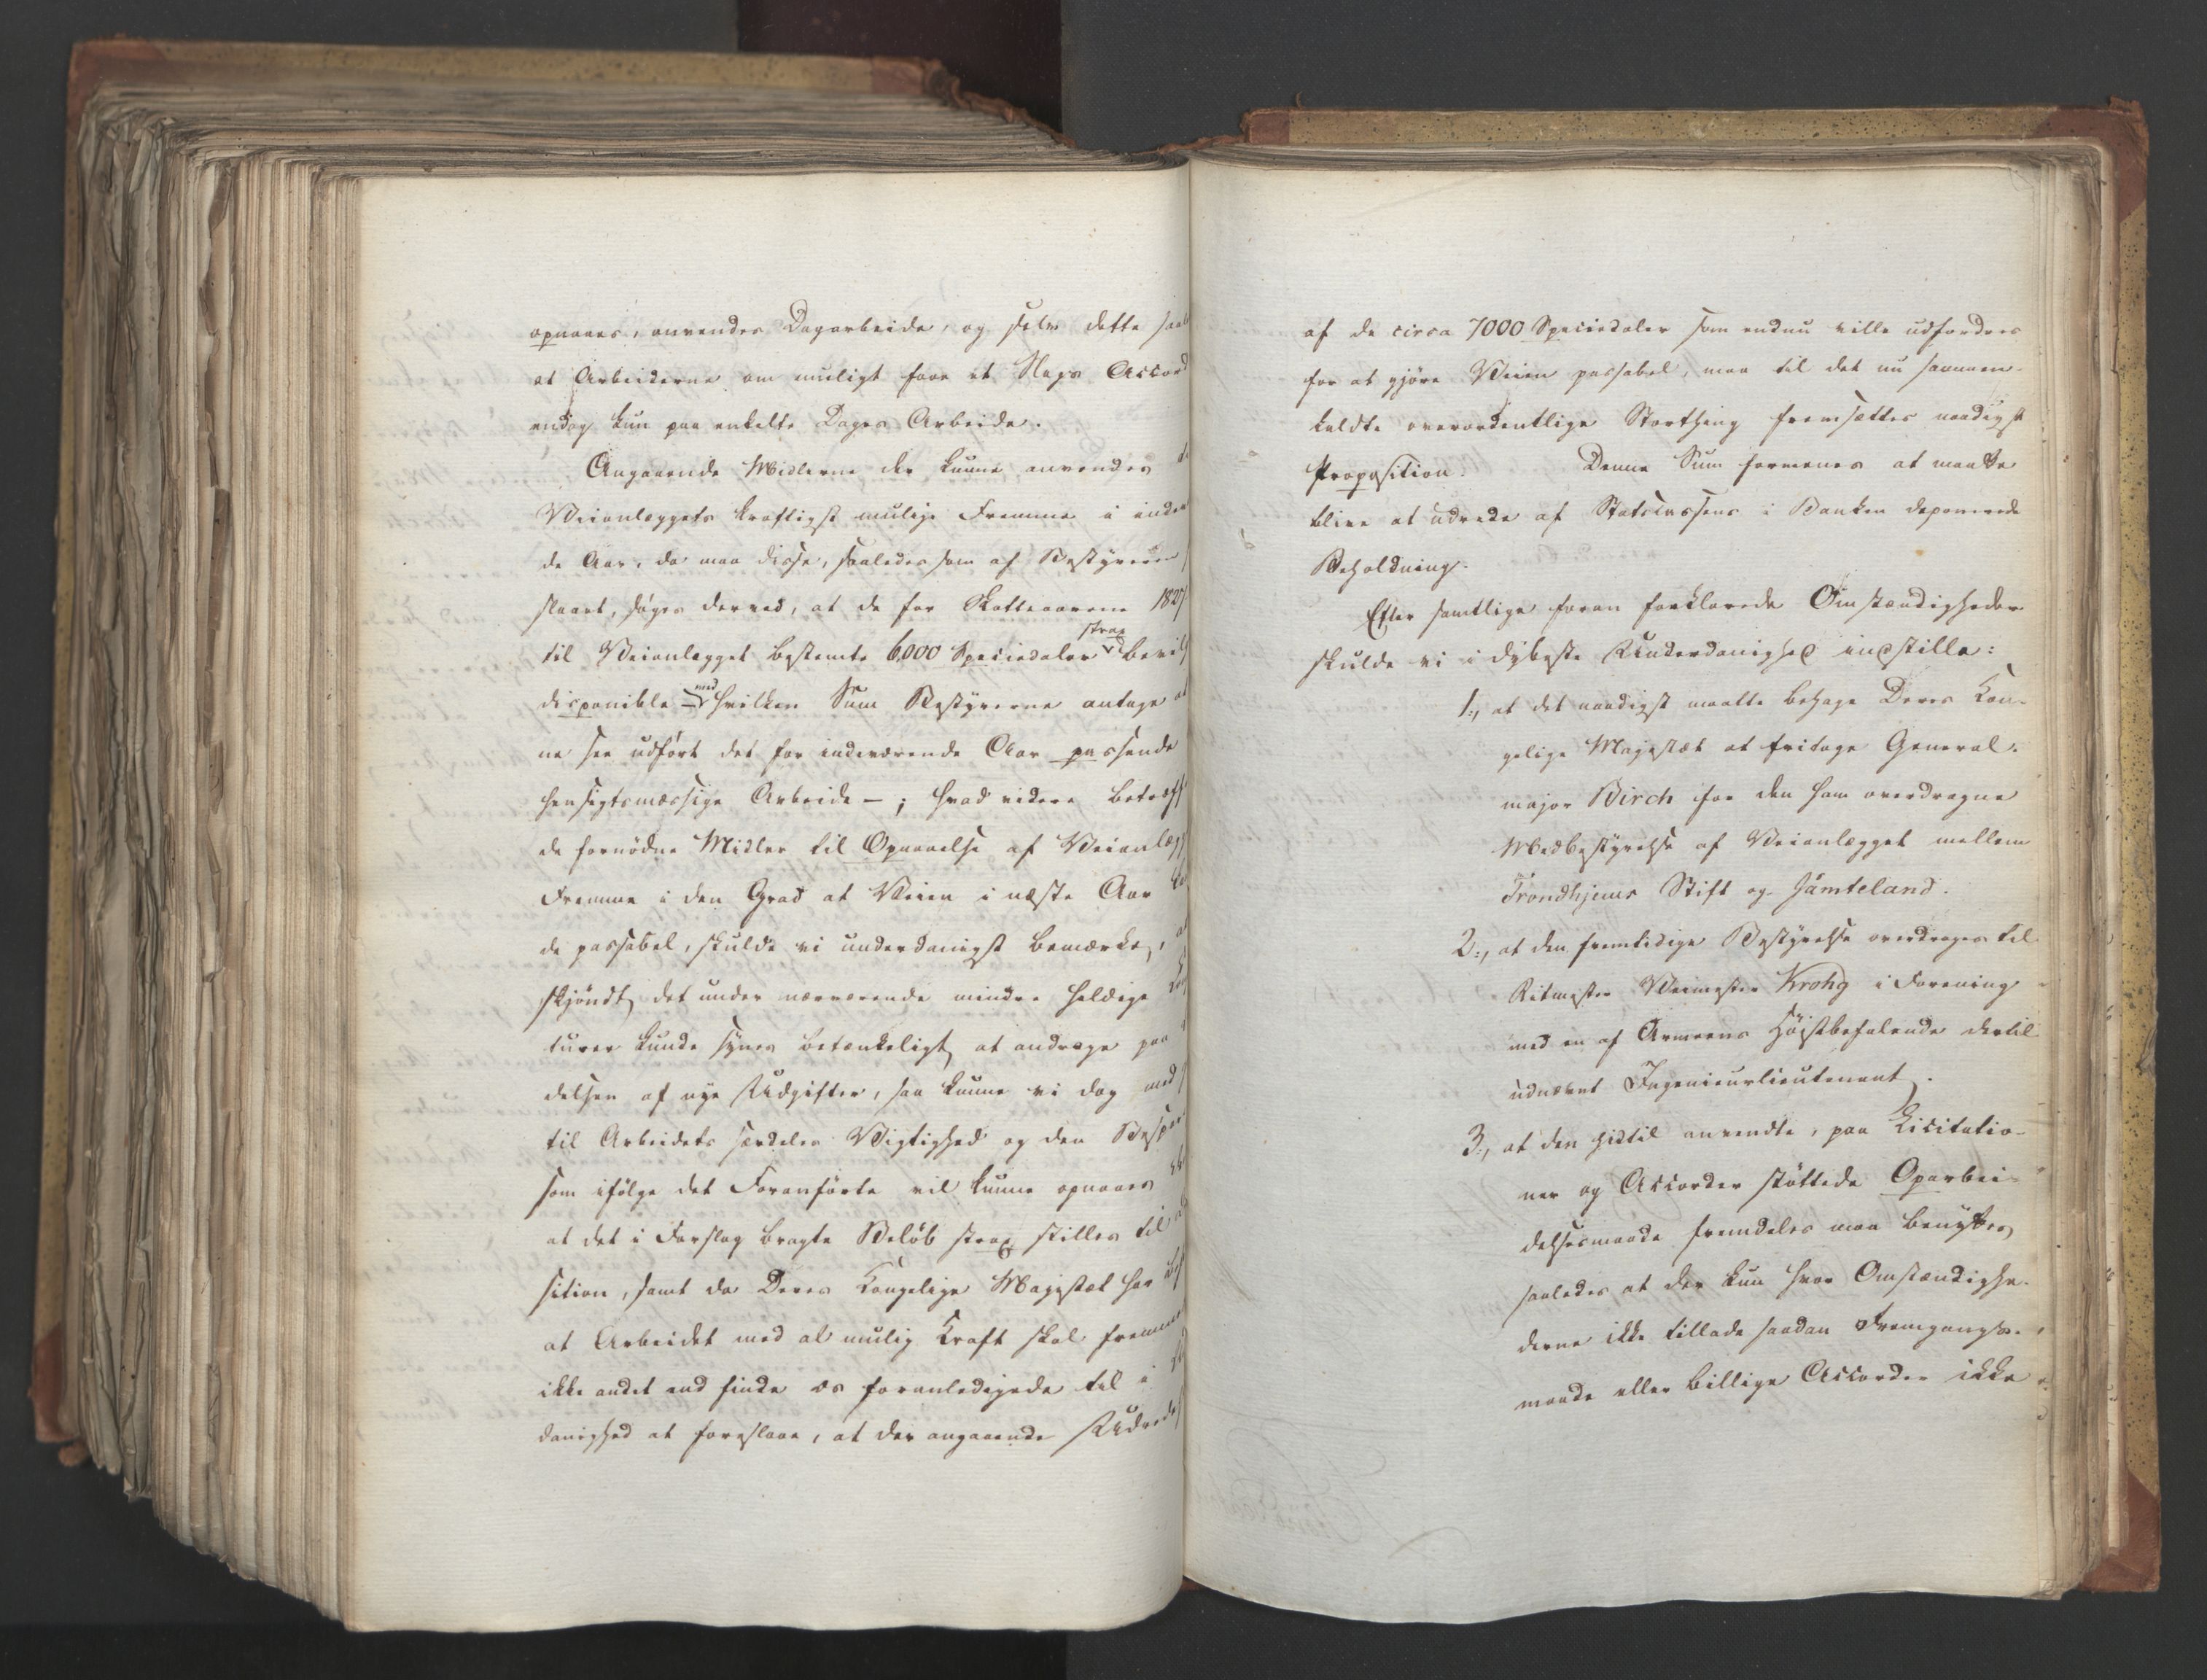 opnaaes, anvendes Dagarbeide, og selv dette saal
at Arbeiderne om muligt faae et Slags Accord
endog kun paa enkelte Dages Arbeide.
Angaaende Midlerne der kunne anvendes
Veianlæggets kraftigst mulige Fremme i inden
de Aar, da maa disse, saaledes som af Bestyreren
slaaet, søges derved, at de for Skatteaarene 1827
til Veianlægget bestemte 6000 Speciedaler strax bevil
disponible med hvilken Sum Bestyrerne antage at
ne see udført det for indeværende Aar passende
hensigtsmæssige Arbeide –; hvad videre betræff
de fornødne Midler til Opnaaelse af Veianlægg
Fremme i den Grad at Veien i næste Aar
de passabel, skulde vi underdanigst bemærke, at
skjöndt det under nærværende mindre heldige
turer kunde synes betænkeligt at andrage paa
delsen af nye Udgifter, saa kunne vi dog med
til Arbeidets særdeles Vigtighed og den Bespar
som ifølge det Foranførte vil kunne opnaaes
at det i Forslag bragte Beløb strax stilles til
sition, samt da Deres Kongelige Majestæt har
at Arbeidet med al mulig Kraft skal fremme
ikke andet end finde os foranledigede til i
danighed at foreslaae, at der angaaende Udred
af de circa 7000 Speciedaler som endnu ville udfordres
for at gjøre Veien passabel, maa til det nu sammen-
kaldte overordentlige Storthing fremsættes naadigst
Proposition. Denne Sum formenes at maatte
blive at udrede af Statscassens i Banken deponerede
Beholdning.
Efter samtlige foran forklarede Omstændigheder
skulde vi i dybeste Underdanighed indstille:
1:, at det naadigst maatte behage Deres Kon-
gelige Majestæt at fritage General-
major Birch for den ham overdragne
Medbestyrelse af Veianlægget mellem
Trondhjems Stift og Jämteland.
2:, at den fremtidige Bestyrelse overdrages til
Ritmester Veimester Krohg i Forening
med en af Armeens Høistbefalende dertil
udnævnt Ingenieurlieutenant.
3:, at den hidtil anvendte, paa Licitatio-
ner og Accorder støttede Oparbei-
delsesmaade fremdeles maa benyttes
saaledes at der kun hvor Omstændighe-
derne ikke tillade saadan Fremgangs-
maade eller billige Accorder ikke